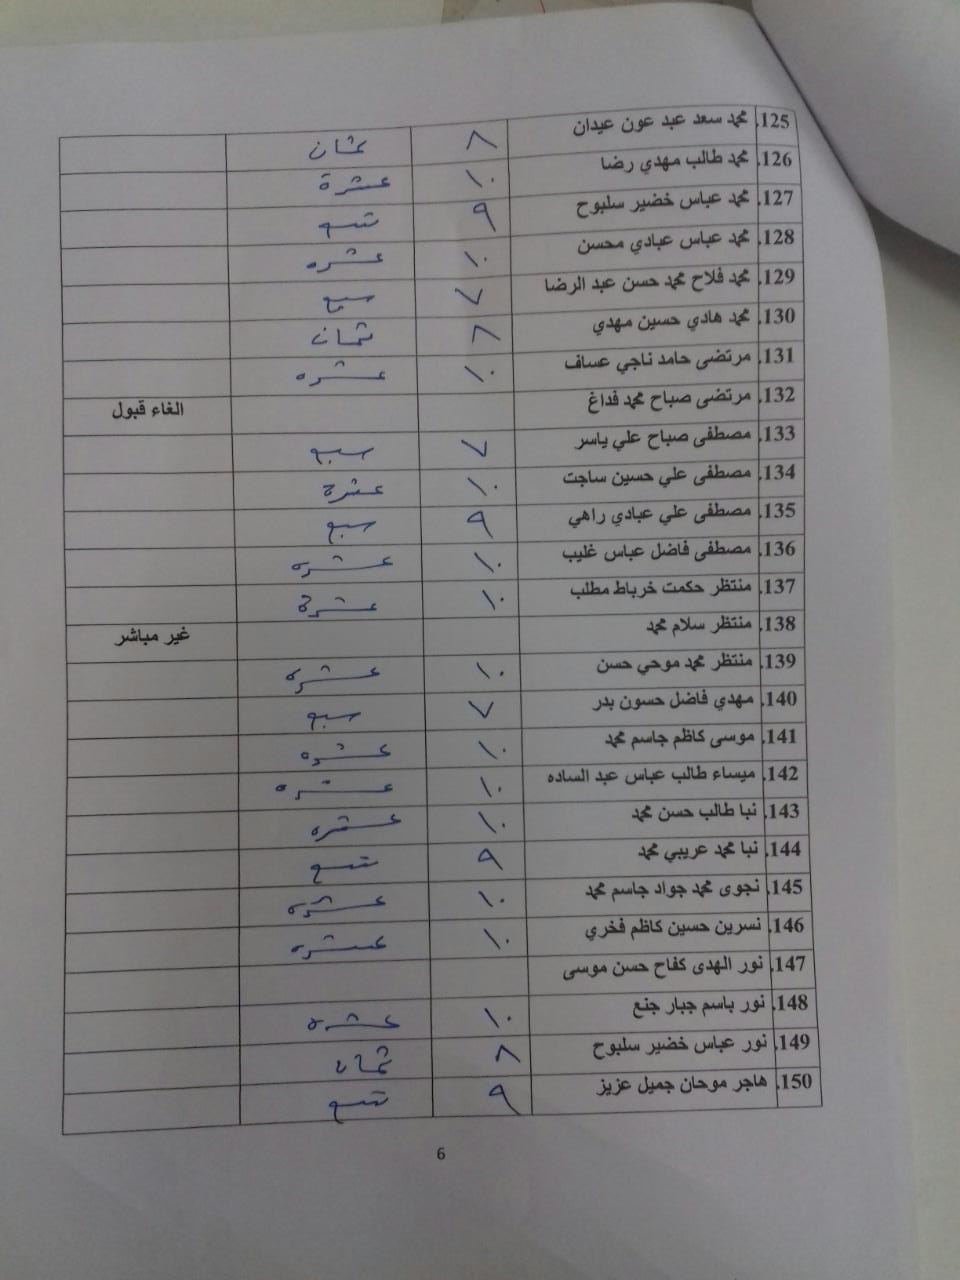 125. محمد سعد عبد عون عيدان ٨ ثمان
126. محمد طالب مهدي رضا ١٠ عشرة
127. محمد عباس خضير سلبوح ٩ تسع
128. محمد عباس عبادي محسن ١٠ عشره
129. محمد فلاح محمد حسن عبد الرضا ٧ سبع
130. محمد هادي حسين مهدي ٨ ثمان
131. مرتضى حامد ناجي عساف ١٠ عشره
132. مرتضى صباح محمد فداغ الغاء قبول
133. مصطفى صباح علي ياسر ٧ سبع
134. مصطفى علي حسين ساجت ١٠ عشرة
135. مصطفى علي عبادي راهي ٩ سبع
136. مصطفى فاضل عباس غليب ١٠ عشره
137. منتظر حكمت خرباط مطلب ١٠ عشرة
138. منتظر سلام محمد غير مباشر
139. منتظر محمد موحي حسن ١٠ عشره
140. مهدي فاضل حسون بدر ٧ سبع
141. موسى كاظم جاسم محمد ١٠ عشره
142. ميساء طالب عباس عبد الساده ١٠ عشره
143. نبا طالب حسن محمد ١٠ عشره
144. نبا محمد عريبي محمد ٩ تسع
145. نجوى محمد جواد جاسم محمد ١٠ عشره
146. نسرين حسين كاظم فخري ١٠ عشره
147. نور الهدى كفاح حسن موسى
148. نور باسم جبار جنع ١٠ عشره
149. نور عباس خضير سلبوح ٨ ثمان
150. هاجر موحان جميل عزيز ٩ تسع
6